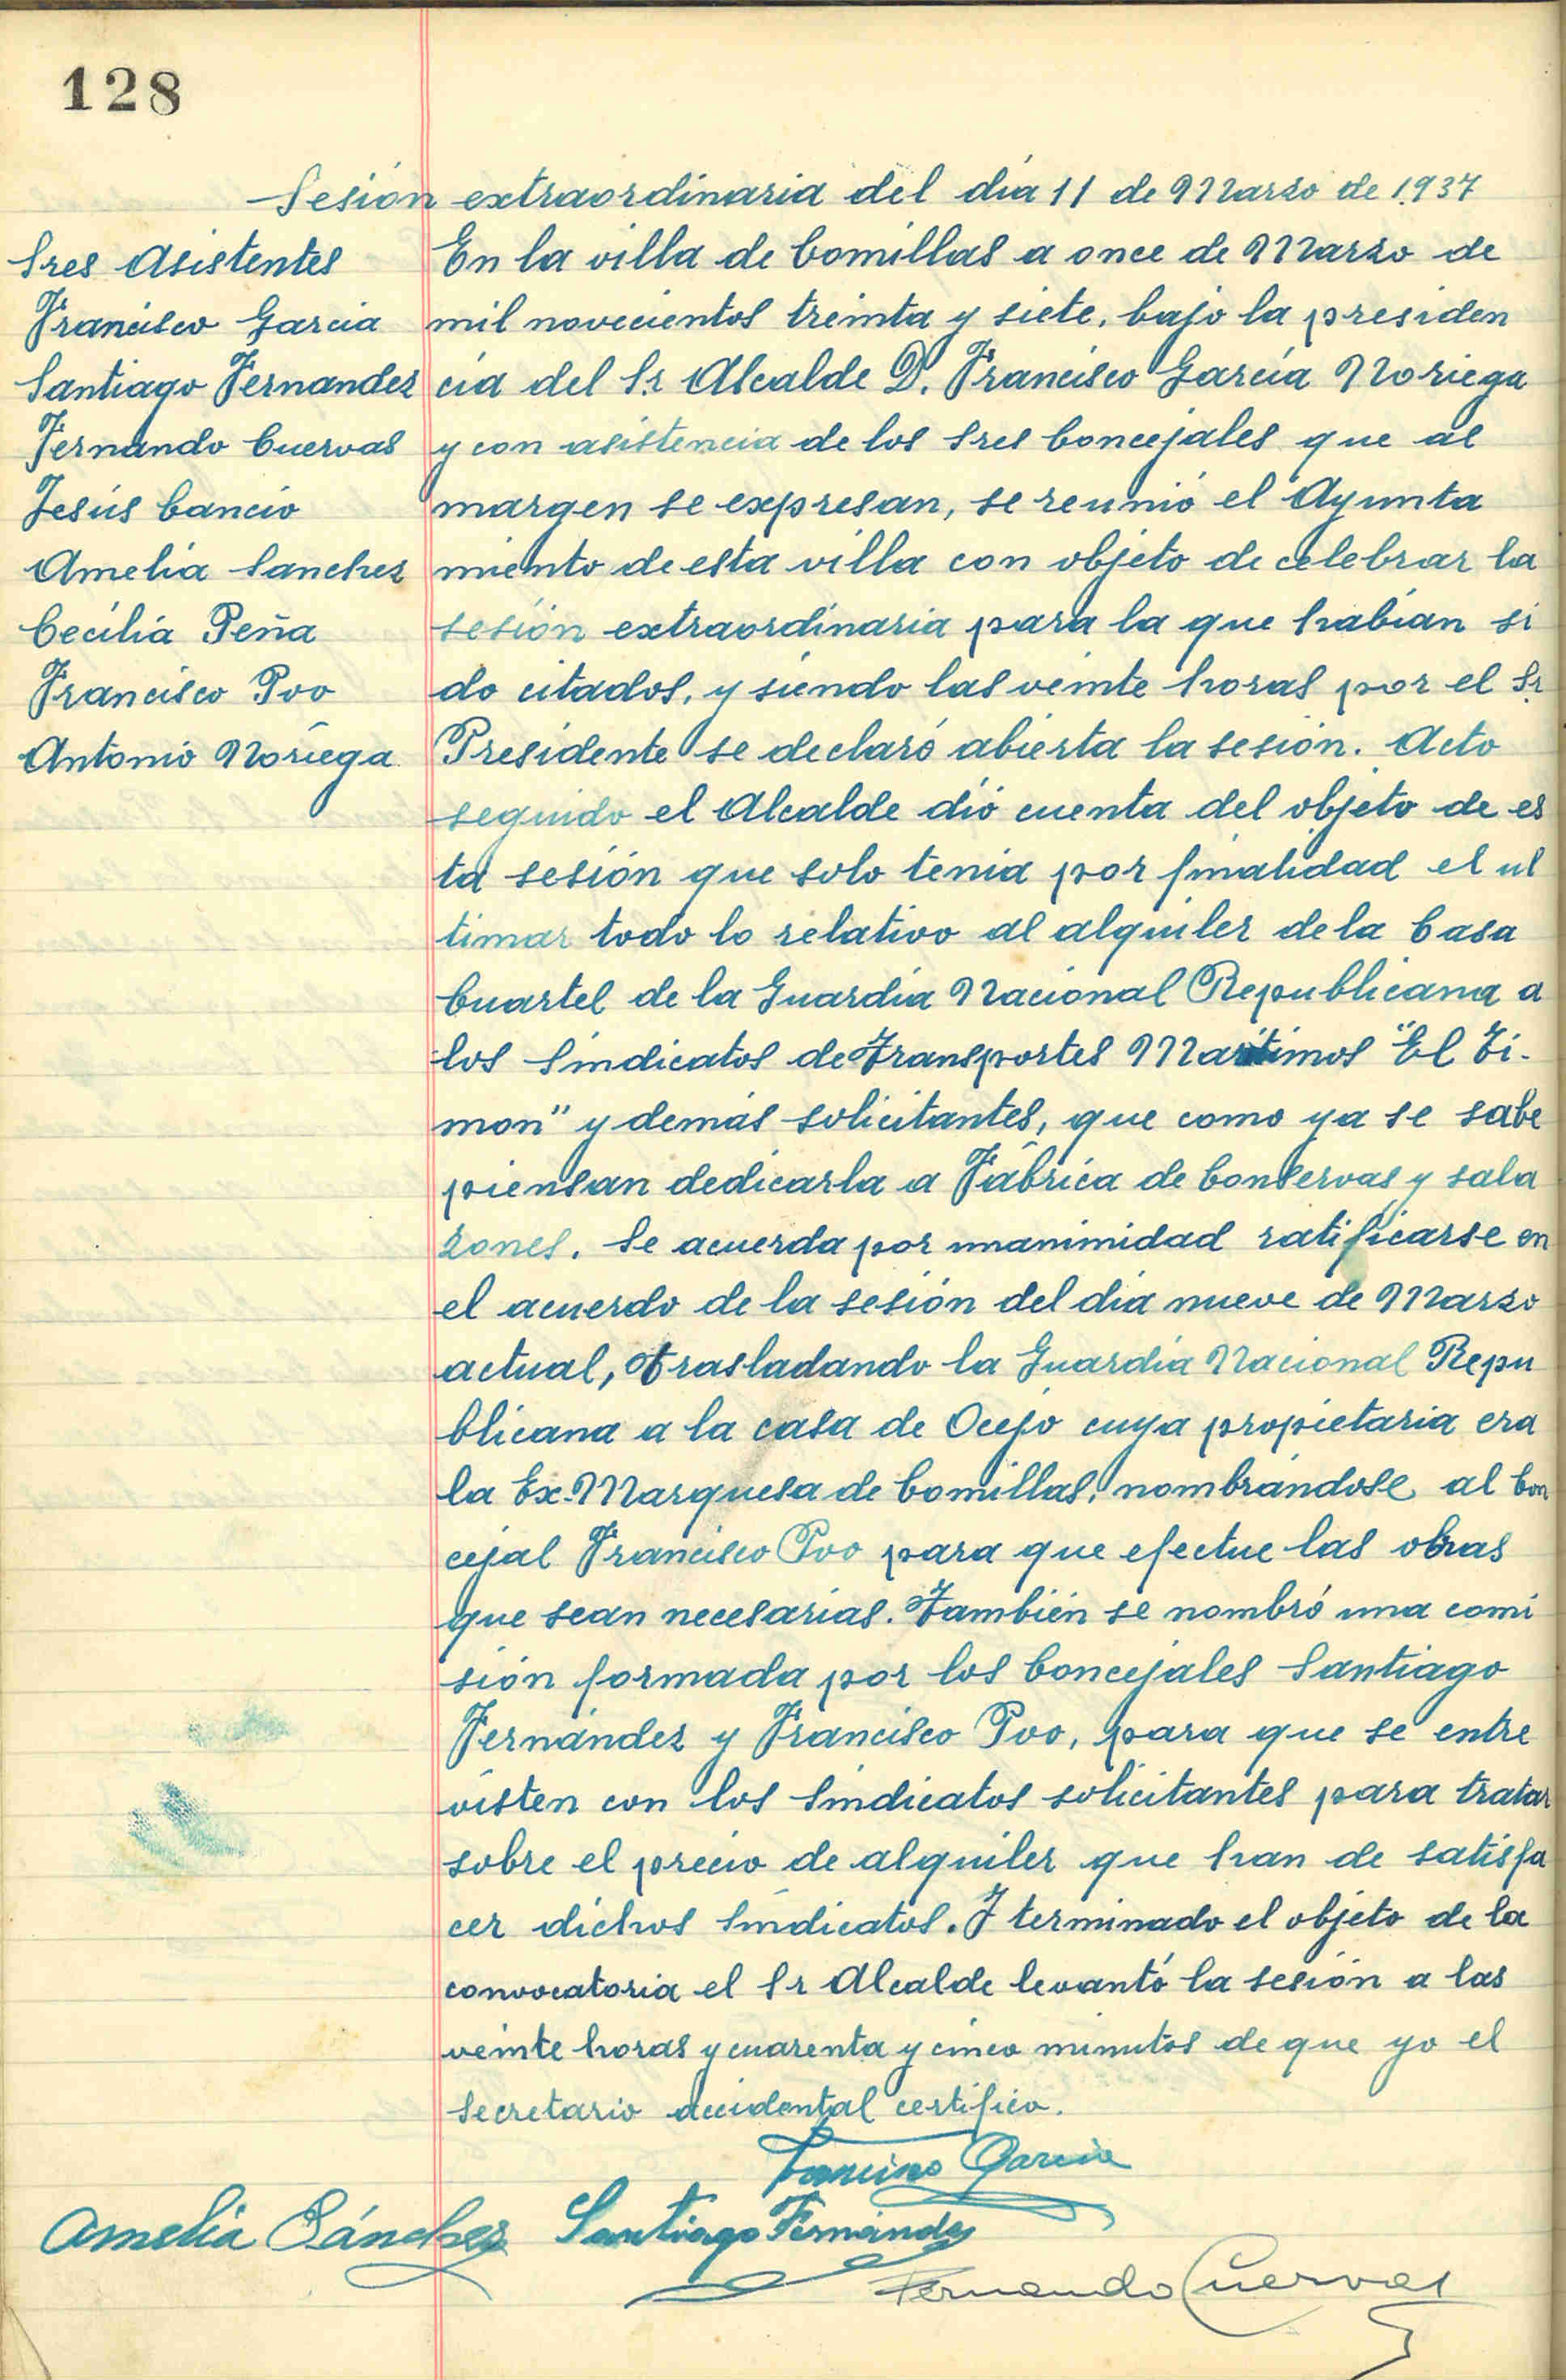 128
Sesión extraordinaria del día 11 de Marzo de 1.937
Sres Asistentes
Francisco Garcia
Santiago Fernandez
Fernando Cuervas
Jesús Cancio
Amelia Sanchez
Cecilia Peña
Francisco Poo
Antonio Noriega
En la villa de Comillas a once de Marzo de
mil novecientos treinta y siete, bajo la presiden
cia del Sr. Alcalde D. Francisco García Noriega
y con asistencia de los Sres Concejales que al
margen se expresan, se reunió el Ayunta
miento de esta villa con objeto de celebrar la
sesión extraordinaria para la que habían si
do citados, y siendo las veinte horas por el Sr.
Presidente se declaró abierta la sesión. Acto
seguido el Alcalde dió cuenta del objeto de es
ta sesión que solo tenia por finalidad el ul
timar todo lo relativo al alquiler de la Casa
Cuartel de la Guardia Nacional Republicana a
los Sindicatos de Transportes Marítimos "El Ti-
mon" y demás solicitantes, que como ya se sabe
piensan dedicarla a Fábrica de Conservas y sala
zones. Se acuerda por unanimidad ratificarse en
el acuerdo de la sesión del día nueve de Marzo
actual, trasladando la Guardia Nacional Repu
blicana a la casa de Ocejo cuya propietaria era
la Ex-Marquesa de Comillas, nombrándose al Con
cejal Francisco Poo para que efectue las obras
que sean necesarias. También se nombró una comi
sión formada por los Concejales Santiago
Fernández y Francisco Poo, para que se entre
visten con los Sindicatos solicitantes para tratar
sobre el precio de alquiler que han de satisfa
cer dichos Sindicatos. Y terminado el objeto de la
convocatoria el Sr Alcalde levantó la sesión a las
veinte horas y cuarenta y cinco minutos de que yo el
Secretario accidental certifico.
Francisco Garcia
Amelia Sánchez Santiago Fernández
Fernando Cuervas